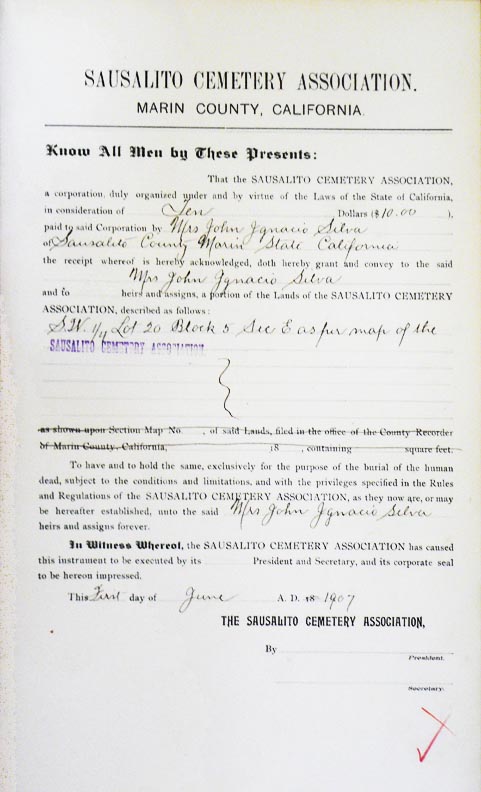 SAUSALITO CEMETERY ASSOCIATION.
MARIN COUNTY, CALIFORNIA.
Know All Men by These Presents:
That the SAUSALITO CEMETERY ASSOCIATION,
a corporation, duly organized under and by virtue of the Laws of the State of California,
in consideration of Ten Dollars ($10.00 ),
paid to said Corporation by Mrs John Ignacio Silva
of Sausalito County Marin State California
the receipt whereof is hereby acknowledged, doth hereby grant and convey to the said
Mrs John Ignacio Silva
and to heirs and assigns, a portion of the Lands of the SAUSALITO CEMETERY
ASSOCIATION, described as follows:
S.W. 1/4 Lot 20 Block 5 Sec E as per map of the
SAUSALITO CEMETERY ASSOCIATION.
as shown upon Section Map No. , of said Lands, filed in the office of the County Recorder
of Marin County, California, 18 , containing square feet.
To have and to hold the same, exclusively for the purpose of the burial of the human
dead, subject to the conditions and limitations, and with the privileges specified in the Rules
and Regulations of the SAUSALITO CEMETERY ASSOCIATION, as they now are, or may
be hereafter established, unto the said Mrs John Ignacio Silva
heirs and assigns forever.
In Witness Whereof, the SAUSALITO CEMETERY ASSOCIATION has caused
this instrument to be executed by its President and Secretary, and its corporate seal
to be hereon impressed.
This First day of June A. D. 18 1907
THE SAUSALITO CEMETERY ASSOCIATION,
By
President.
Secretary.